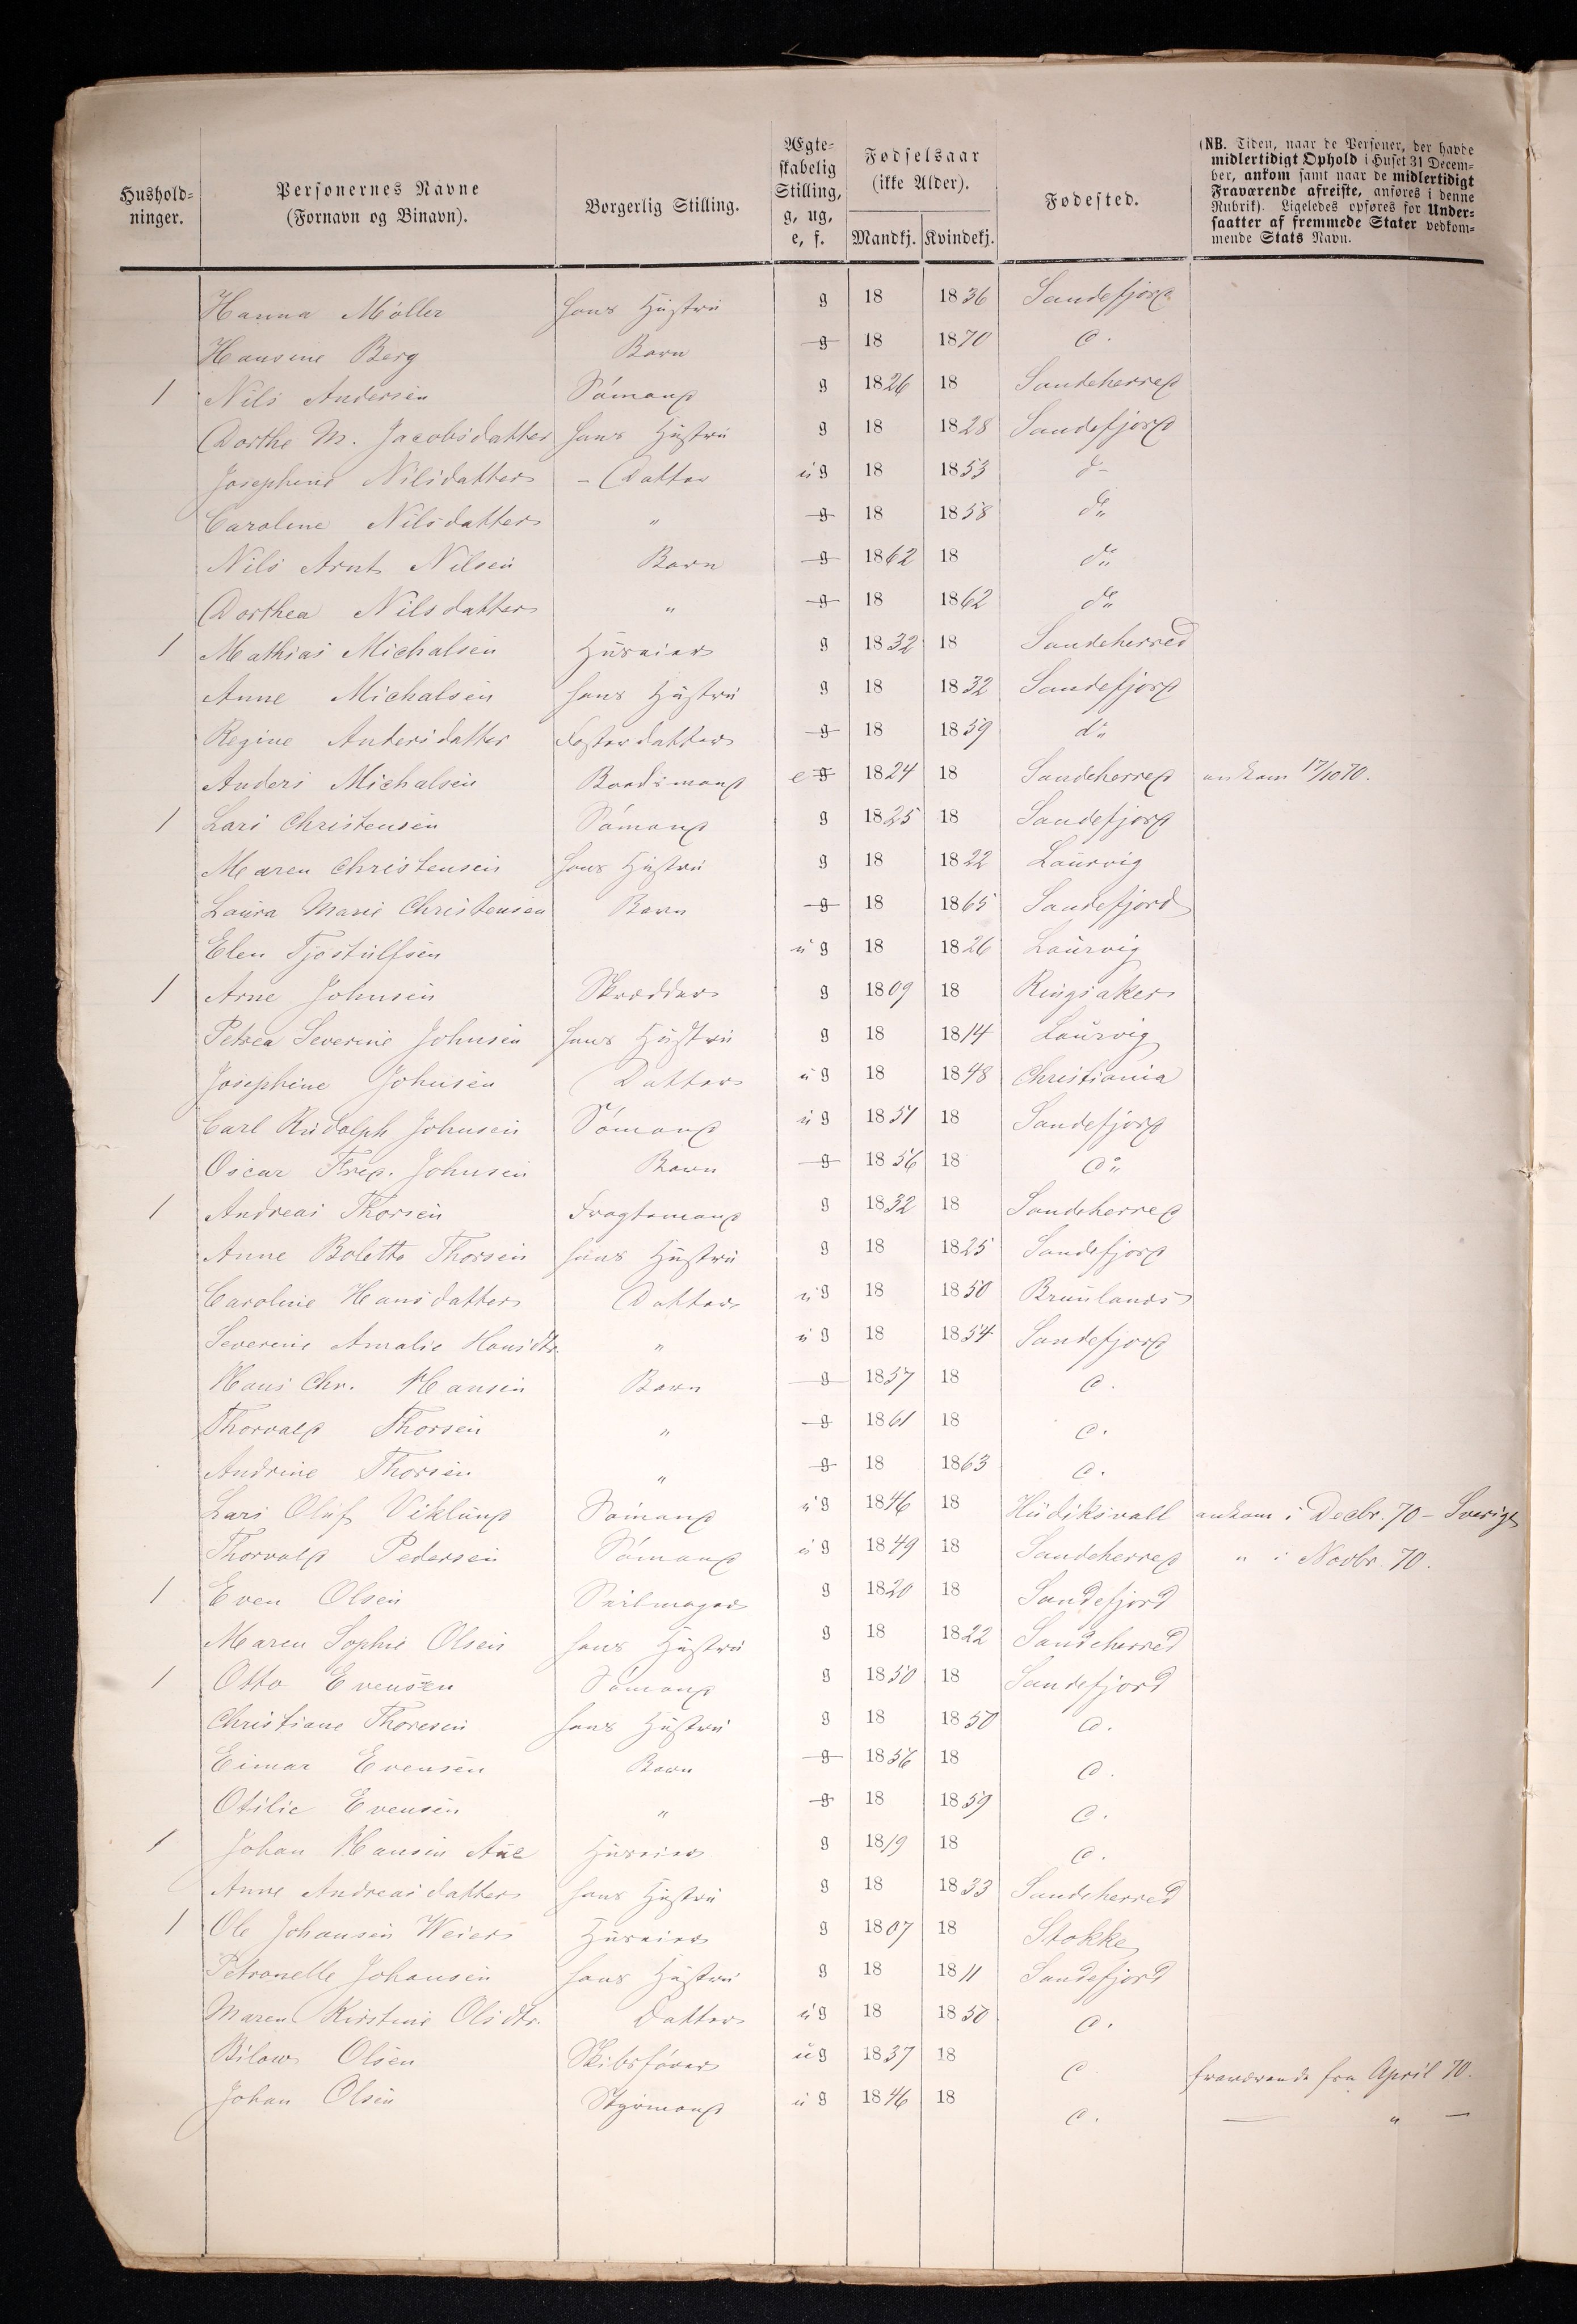 Hushold-
ninger.
Personernes Navne
(Fornavn og Binavn).
Borgerlig Stilling.
Ægte-
skabelig
Stilling,
g, ug,
e, f.
Fødselsaar
(ikke Alder).
Mandkj. Kvindekj.
Fødested.
(NB. Tiden, naar de Personer, der havde
midlertidigt Ophold i Huset 31 Decem-
ber, ankom samt naar de midlertidigt
Fraværende afreiste, anføres i denne
Rubrik). Ligeledes opføres for Under-
saatter af fremmede Stater vedkom-
mende Stats Navn.
Hanna Møller hans Hustru g 18 1836 Sandefjord
Hansine Berg Barn g 18 1870 d.
1 Nils Andersen Sömand g 1826 18 Sandeherred
Dorthe M. Jacobsdatter hans Hustru g 18 1828 Sandefjord
Josephine Nilsdatter - Datter ug 18 1853 d-
Caroline Nilsdatter " g 18 1858 do
Nils Arnt Nilsen Barn g 1862 18 do
Dorthea Nilsdatter " g 18 1862 do
1 Mathias Michalsen Huseier g 1832 18 Sandeherred
Anne Michalsen hans Hustru g 18 1832 Sandefjord
Regine Andersdatter Fosterdatter g 18 1859 do
Anders Michalsen Baadsmand e g 1824 18 Sandeherred ankom 17/10 70.
1 Lars Christensen Sömand g 1825 18 Sandefjord
Maren Christensen hans Hustru g 18 1822 Laurvig
Laura Marie Christensen Barn g 18 1865 Sandefjord
Elen Tjostulfsen ug 18 1826 Laurvig
1 Arne Johnsen Skrædder g 1809 18 Ringsaker
Petrea Severine Johnsen hans Hustru g 18 1814 Laurvig
Josephine Johnsen Datter ug 18 1848 Christiania
Carl Rudolph Johnsen Sömand ug 1851 18 Sandefjord
Oscar Fred. Johnsen Barn g 1856 18 do
1 Andreas Thorsen Fragtemand g 1832 18 Sandeherred
Anne Bolette Thorsen hans Hustru g 18 1825 Sandefjord
Caroline Hansdatter Datter ug 18 1850 Brunlands
Severine Amalie Hansdtr. " ug 18 1854 Sandefjord
Hans Chr. Hansen Barn g 1857 18 d.
Thorvald Thorsen " g 1861 18 d.
Andrine Thorsen " g 18 1863 d.
Lars Oluf Viklund Sömand ug 1846 18 Hudiksvall ankom i Decbr. 70 - Sverige
Thorvald Pedersen Sömand ug 1849 18 Sandeherred " i Novbr. 70.
1 Even Olsen Seilmager g 1820 18 Sandefjord
Maren Sophie Olsen hans Hustru g 18 1822 Sandeherred
1 Otto Evensen Sömand g 1850 18 Sandefjord
Christiane Thoresen hans Hustru g 18 1850 d.
Eimar Evensen Barn g 1856 18 d.
Otilie Evensen " g 18 1859 d.
1 Johan Hansen Aue Huseier g 1819 18 d.
Anne Andreasdatter hans Hustru g 18 1833 Sandeherred
1 Ole Johansen Weier Huseier g 1807 18 Stokke
Petronelle Johansen hans Hustru g 18 1811 Sandefjord
Maren Kirstine Olsdtr. Datter ug 18 1850 d.
Bilow Olsen Skibsförer ug 1837 18 d fraværende fra April 70.
Johan Olsen Styrmand ug 1846 18 d. — " —